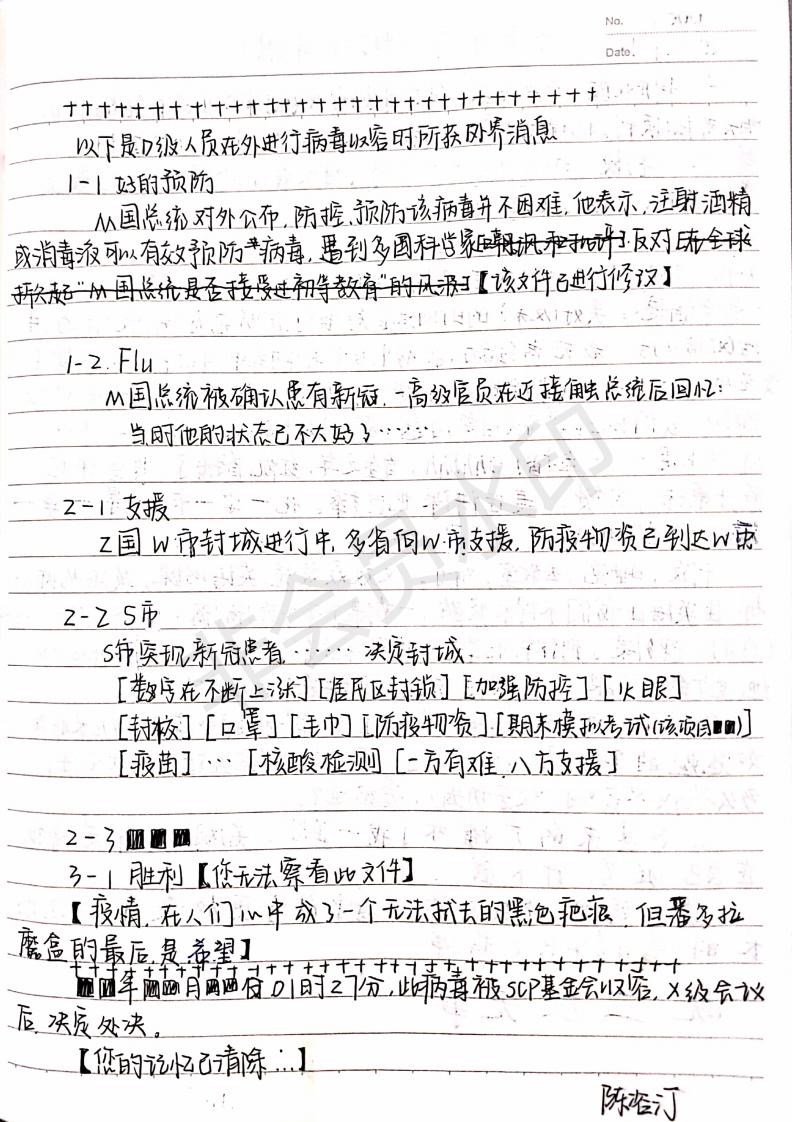 No.
Date.
++++++++++++++++++++++++++++++++++
以下是D级人员在外进行病毒收容时所获外界消息
1-1 好的预防
M国总统对外公布，防控、预防该病毒并不困难，他表示，注射酒精
或消毒液可以有效预防*病毒，遇到多国科学家[嘲讽和批评]反对[在全球
掀起“M国总统是否接受过初等教育”的风波]【该文件已进行修改】
1-2. Flu
M国总统被确认患有新冠，一高级官员在近接触总统后回忆：
当时他的状态已不大好了……
2-1. 支援
Z国W市封城进行中，多省向W市支援，防疫物资已到达W市
2-2 S市
S市实现新冠患者，……决定封城
[数字在不断上涨][居民区封锁][加强防控][火眼]
[封校][口罩][毛巾][防疫物资][期末模拟考试(该项目■■)]
[疫苗]…[核酸检测][一方有难，八方支援]
2-3 ■■■
3-1 胜利【您无法察看此文件】
【疫情，在人们心中成了一个无法拭去的黑色疤痕，但潘多拉
魔盒的最后，是希望】
++++++++++++++++++++++++++++++++++
■■年■■月■■日01时27分，此病毒被SCP基金会收容，X级会议
后，决定处决。
【您的记忆已清除∴】
非会员水印